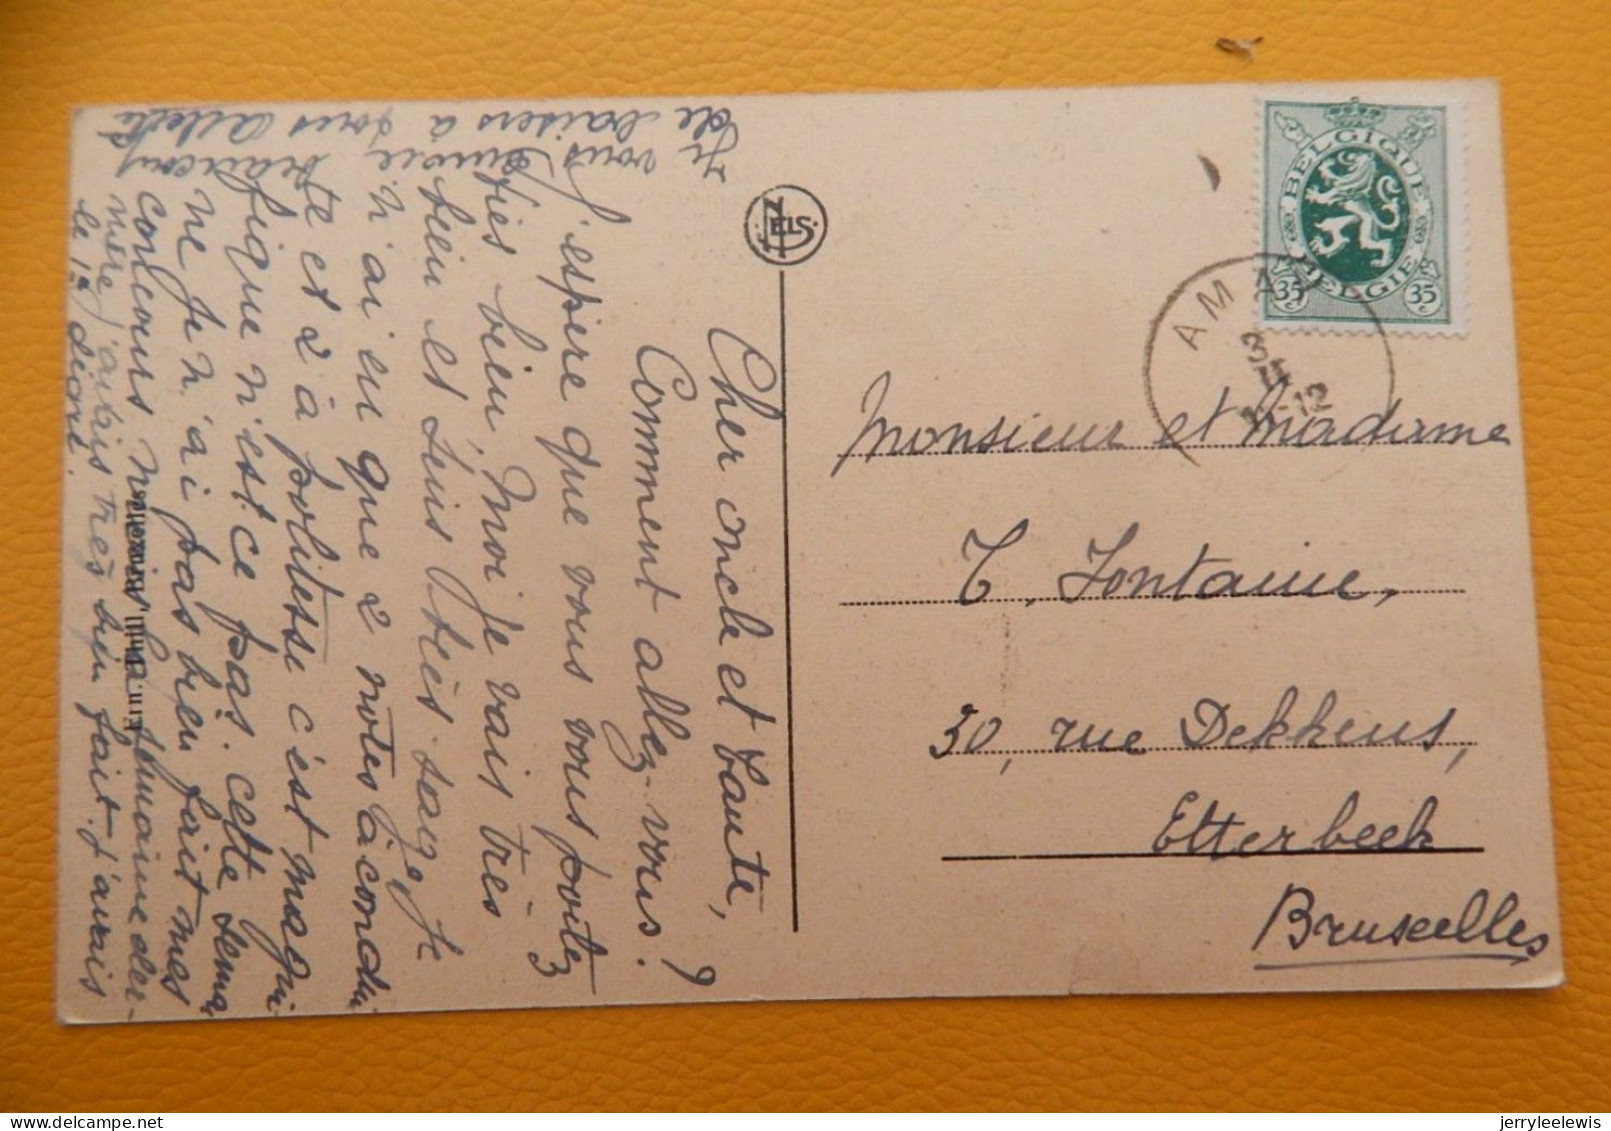 Cher oncle et tante,
Comment allez-vous?
J'espère que vous vous portez
très bien, moi je vais très
bien et suis très sage. Je
n'ai eu que 2 notes à condui
te et 2 à politesse c'est magni
fique n'est ce pas. cette sema
ne je n'ai pas bien fait mes
concours mais la semaine der-
nière j'aurais très bien fait. j'aurais
le 1er
Je vous envoie beaucoup
de baisers à tous
NELS
BELGIQUE
BELGIE
35 c
35 c
AMAY
3
II
11-12
Monsieur et Madame
T. Fontaine,
30, rue Dekkens,
Etterbeek
Bruxelles
jerryleelewis